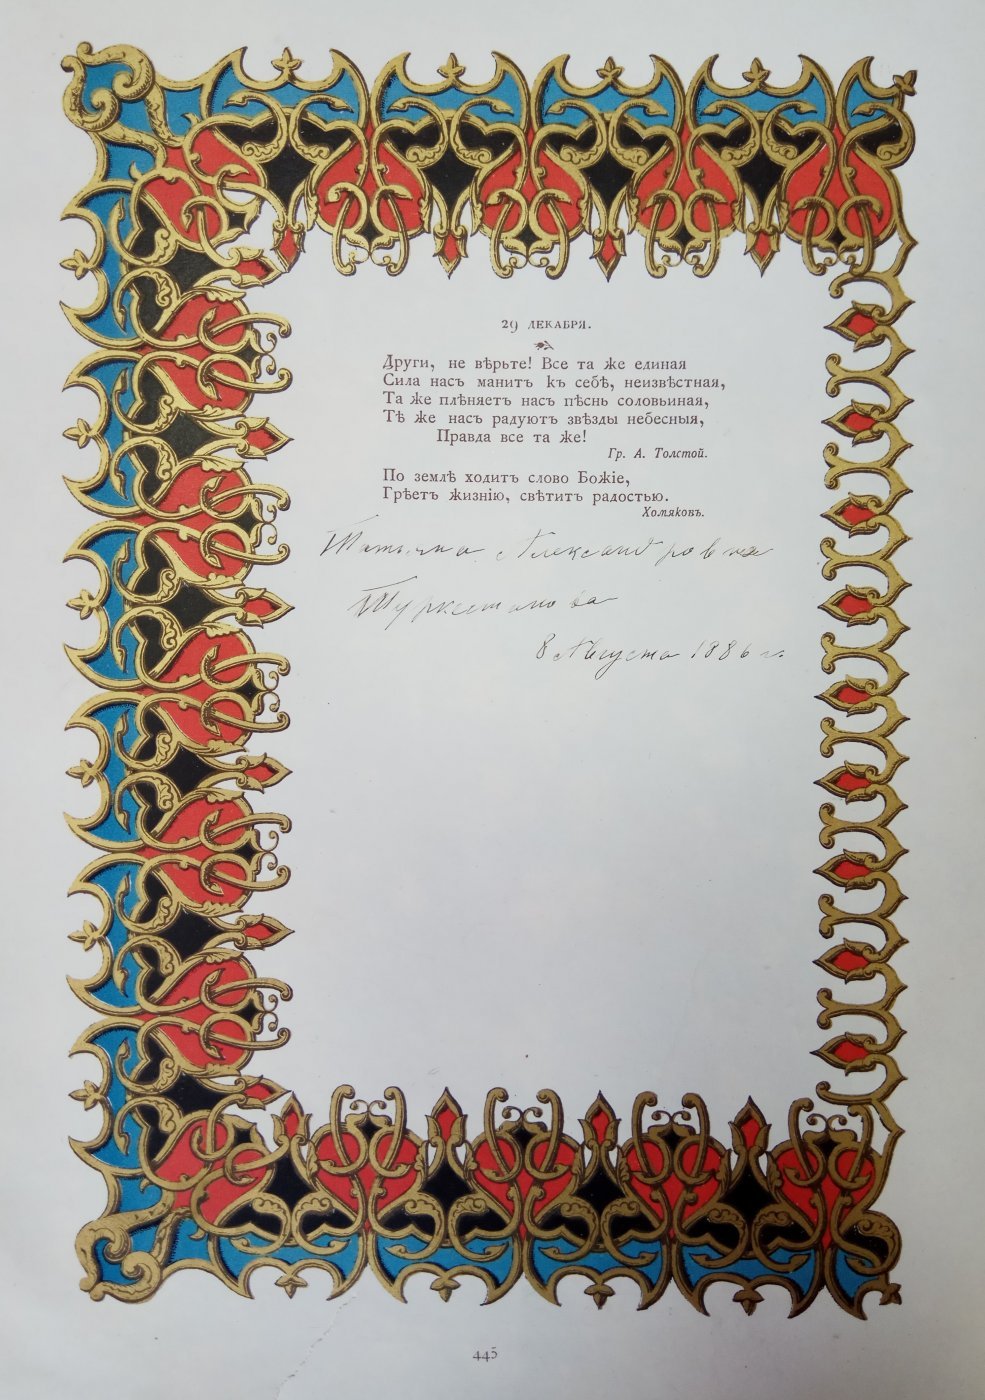 29 ДЕКАБРЯ.
Други, не вѣрьте! Все та же единая
Сила насъ манитъ къ себѣ, неизвѣстная,
Та же плѣняетъ насъ пѣснь соловьиная,
Тѣ же насъ радуютъ звѣзды небесныя,
Правда все та же!
Гр. А. Толстой.
По землѣ ходитъ слово Божіе,
Грѣетъ жизнію, свѣтитъ радостью.
Хомяковъ.
Татьяна Александровна
Туркестанова
8 Августа 1886 г.
445